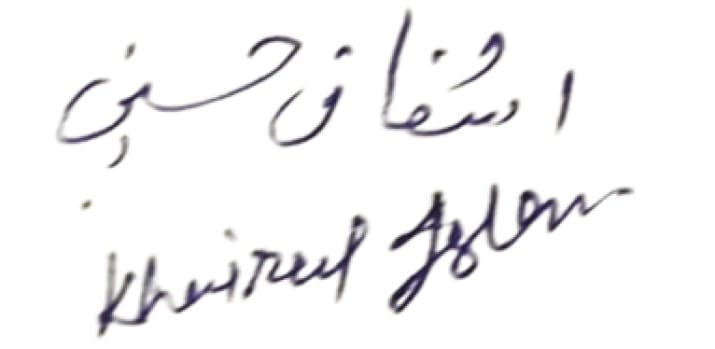 اشفاق حسین
Khairul Islam